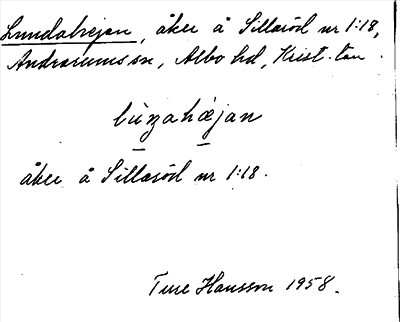 Lundahejan, åker å Sillaröd nr 1:18,
Andrarums sn, Albo hd, Krist. län.
lùŋahæjan
åker å Sillaröd nr 1:18.
Ture Hansson 1958.